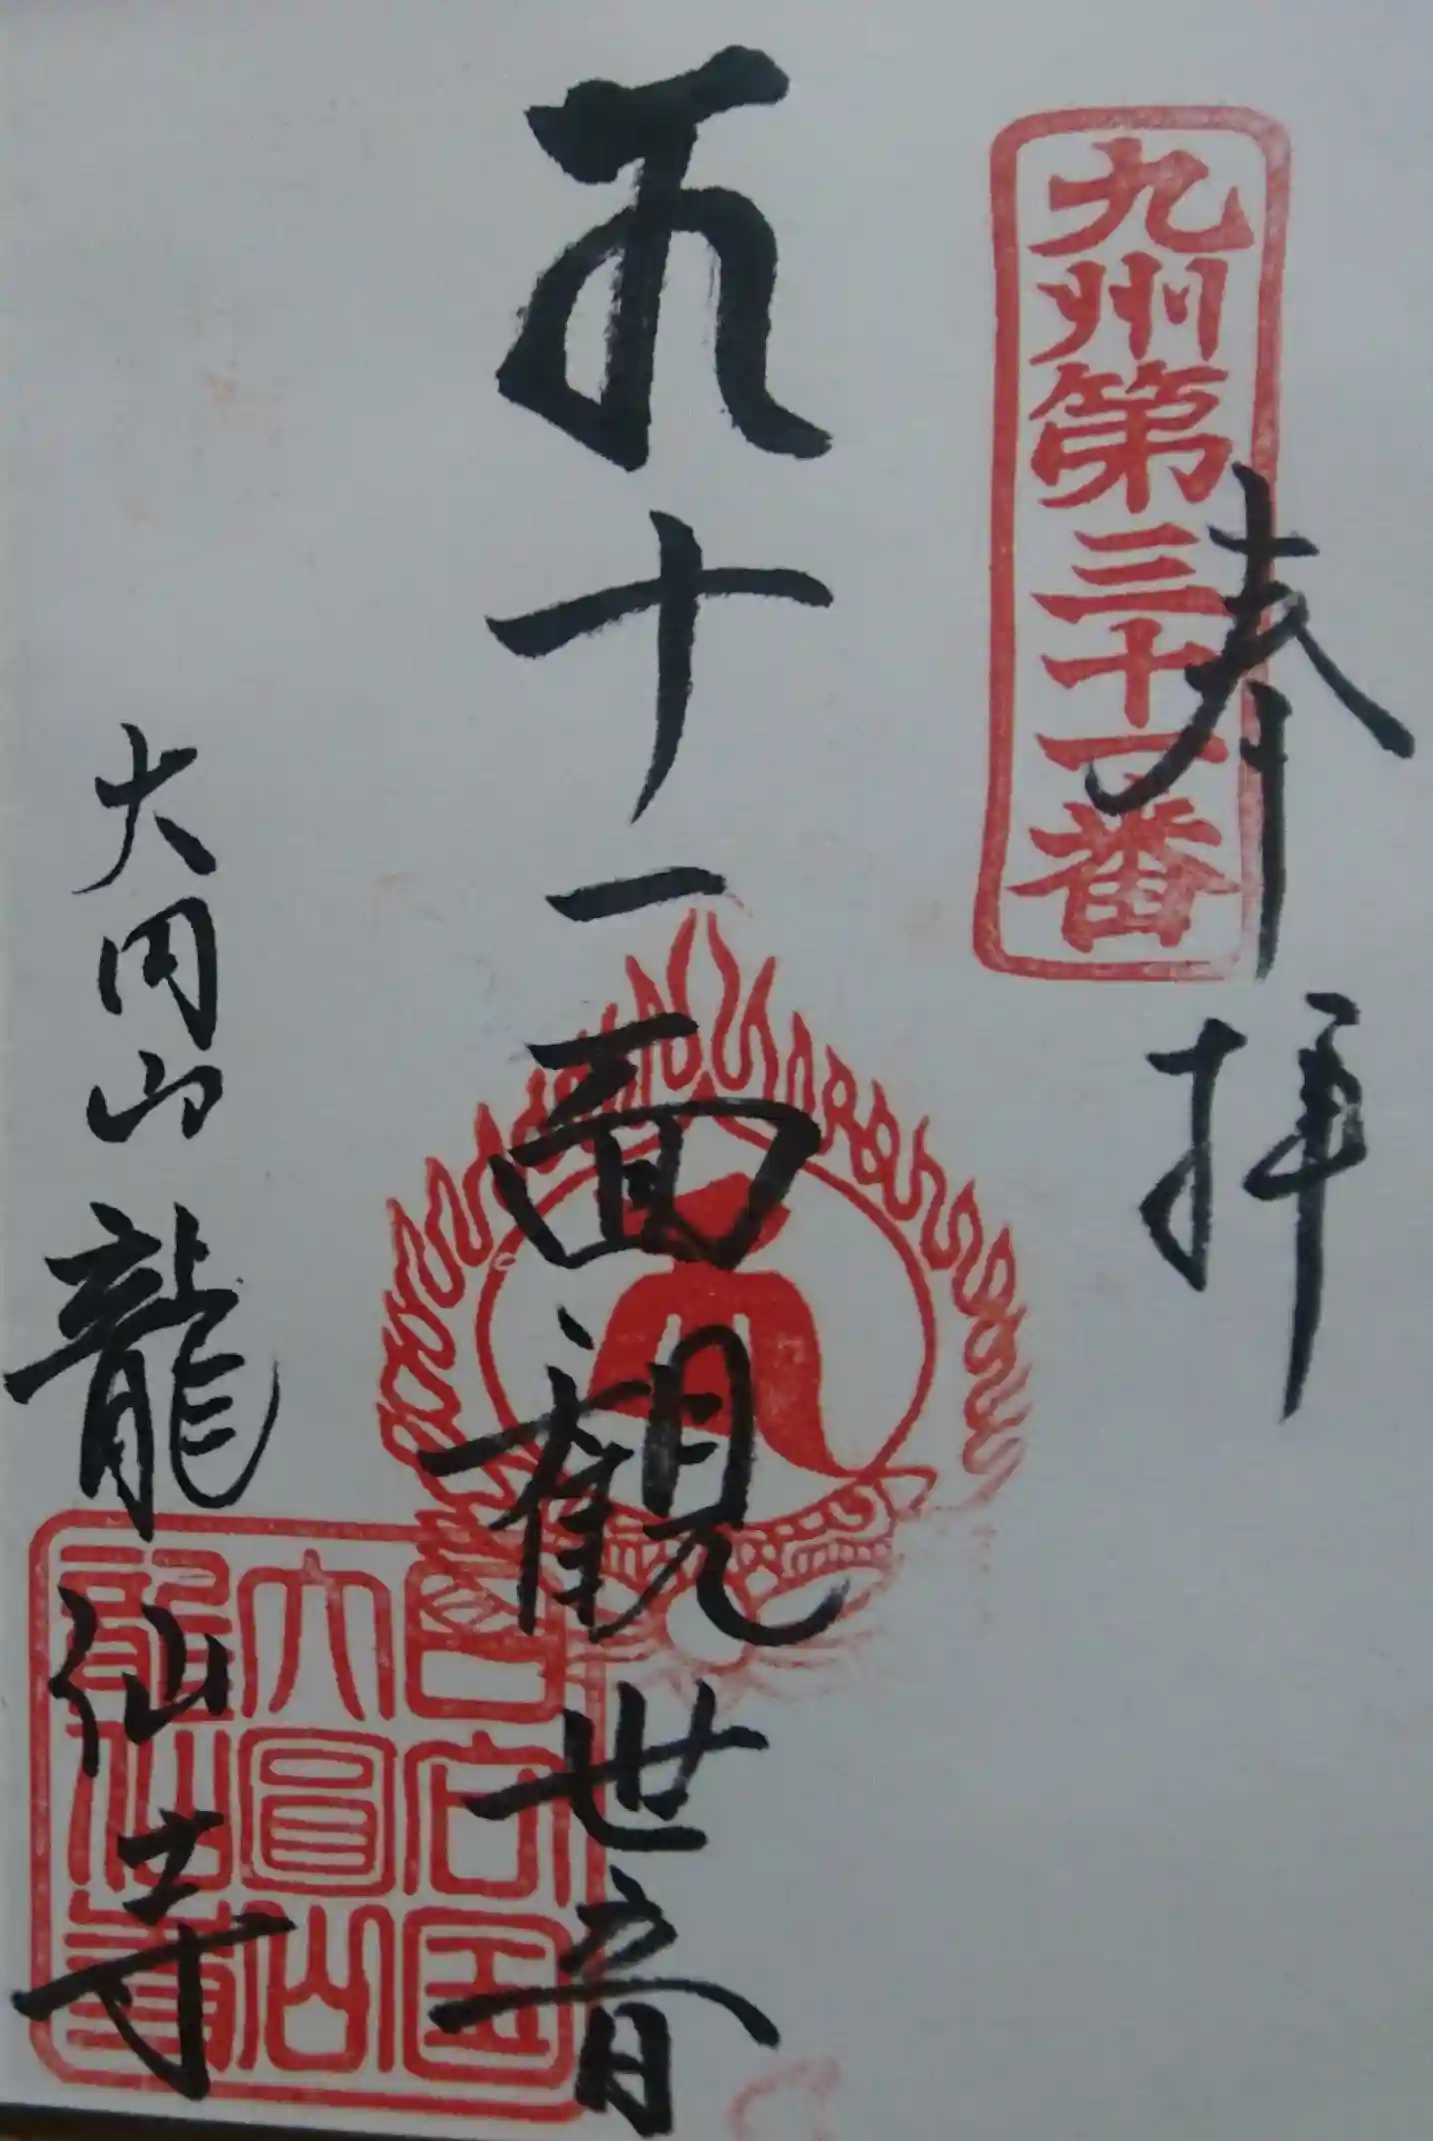 九州第三十一番
奉拝
十一面観世音
大円山 龍仙寺
日向国
大圓山
龍仙寺